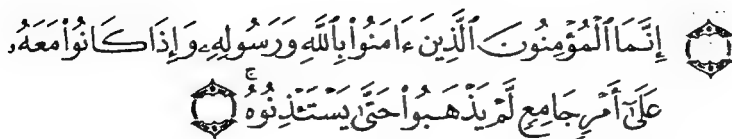 إِنَّمَا ٱلْمُؤْمِنُونَ ٱلَّذِينَ ءَامَنُوا۟ بِٱللَّهِ وَرَسُولِهِۦ وَإِذَا كَانُوا۟ مَعَهُۥ
عَلَىٰٓ أَمْرٍ جَامِعٍ لَّمْ يَذْهَبُوا۟ حَتَّىٰ يَسْتَـْٔذِنُوهُ ۚ